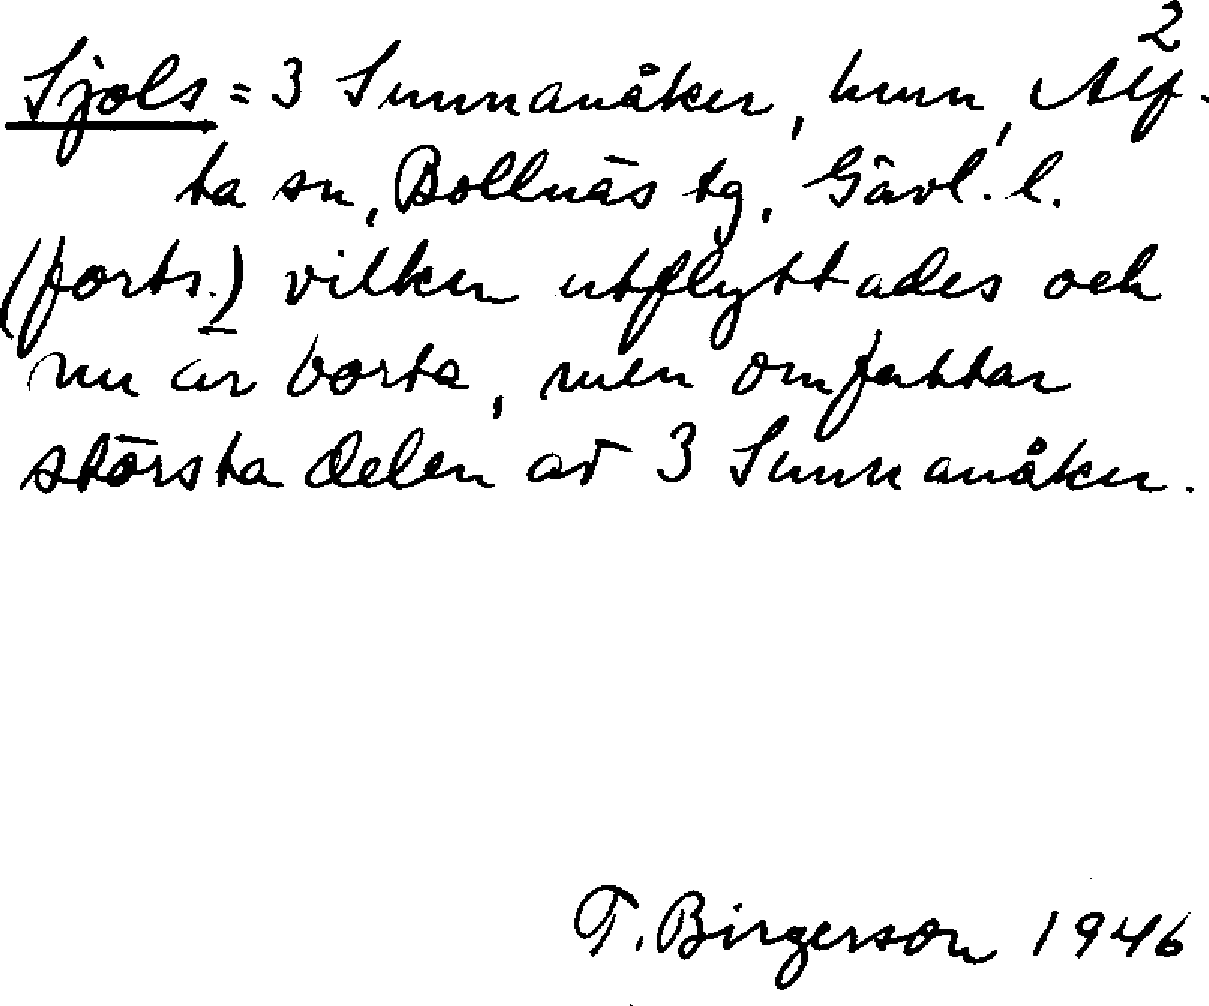 2
Sjols = 3 Sunnanåker, hmn, Alf-
ta sn, Bollnäs tg, Gävl. l.
(forts.) vilken utflyttades och
nu är borta, men omfattar
största delen av 3 Sunnanåker.
T. Birgerson 1946